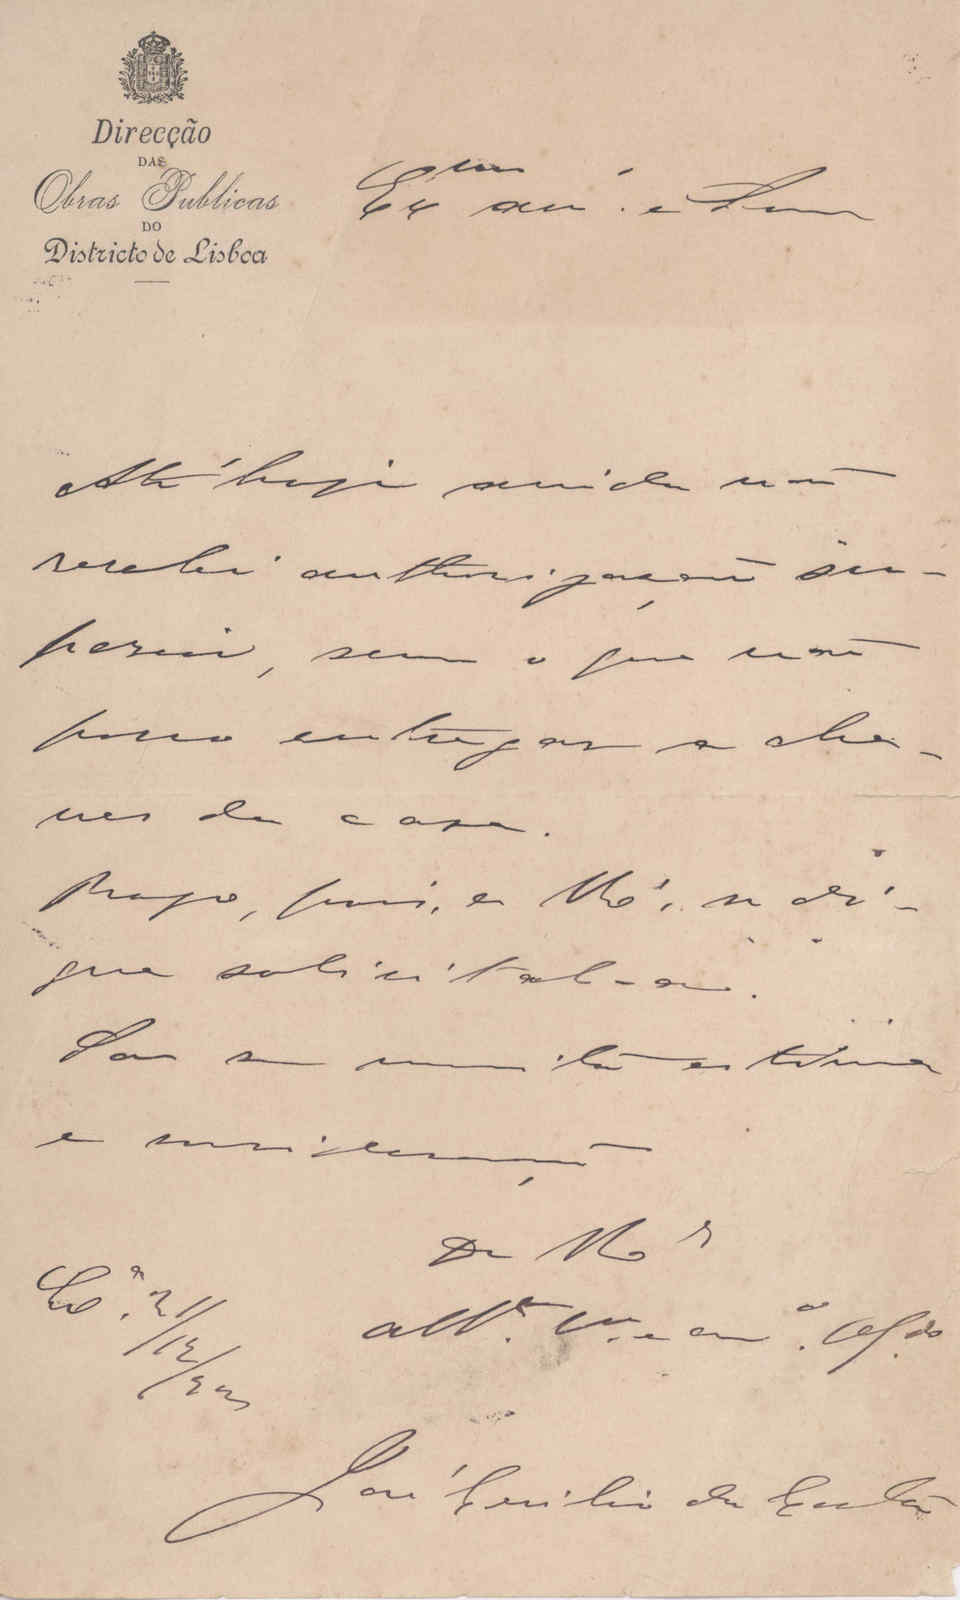 Direcção
DAS
Obras Publicas
DO
Districto de Lisboa
Exmo. am.º e Snr.
Até hoje ainda não
recebi authorisação su-
perior, sem o que não
posso entregar a cha-
ves da casa.
Rogo, pois, a V.
que solicital-a.
Sou com muita estima
e consideração
De V.
att.º V.or e am.º
21/12/
José Cecilio da Costa